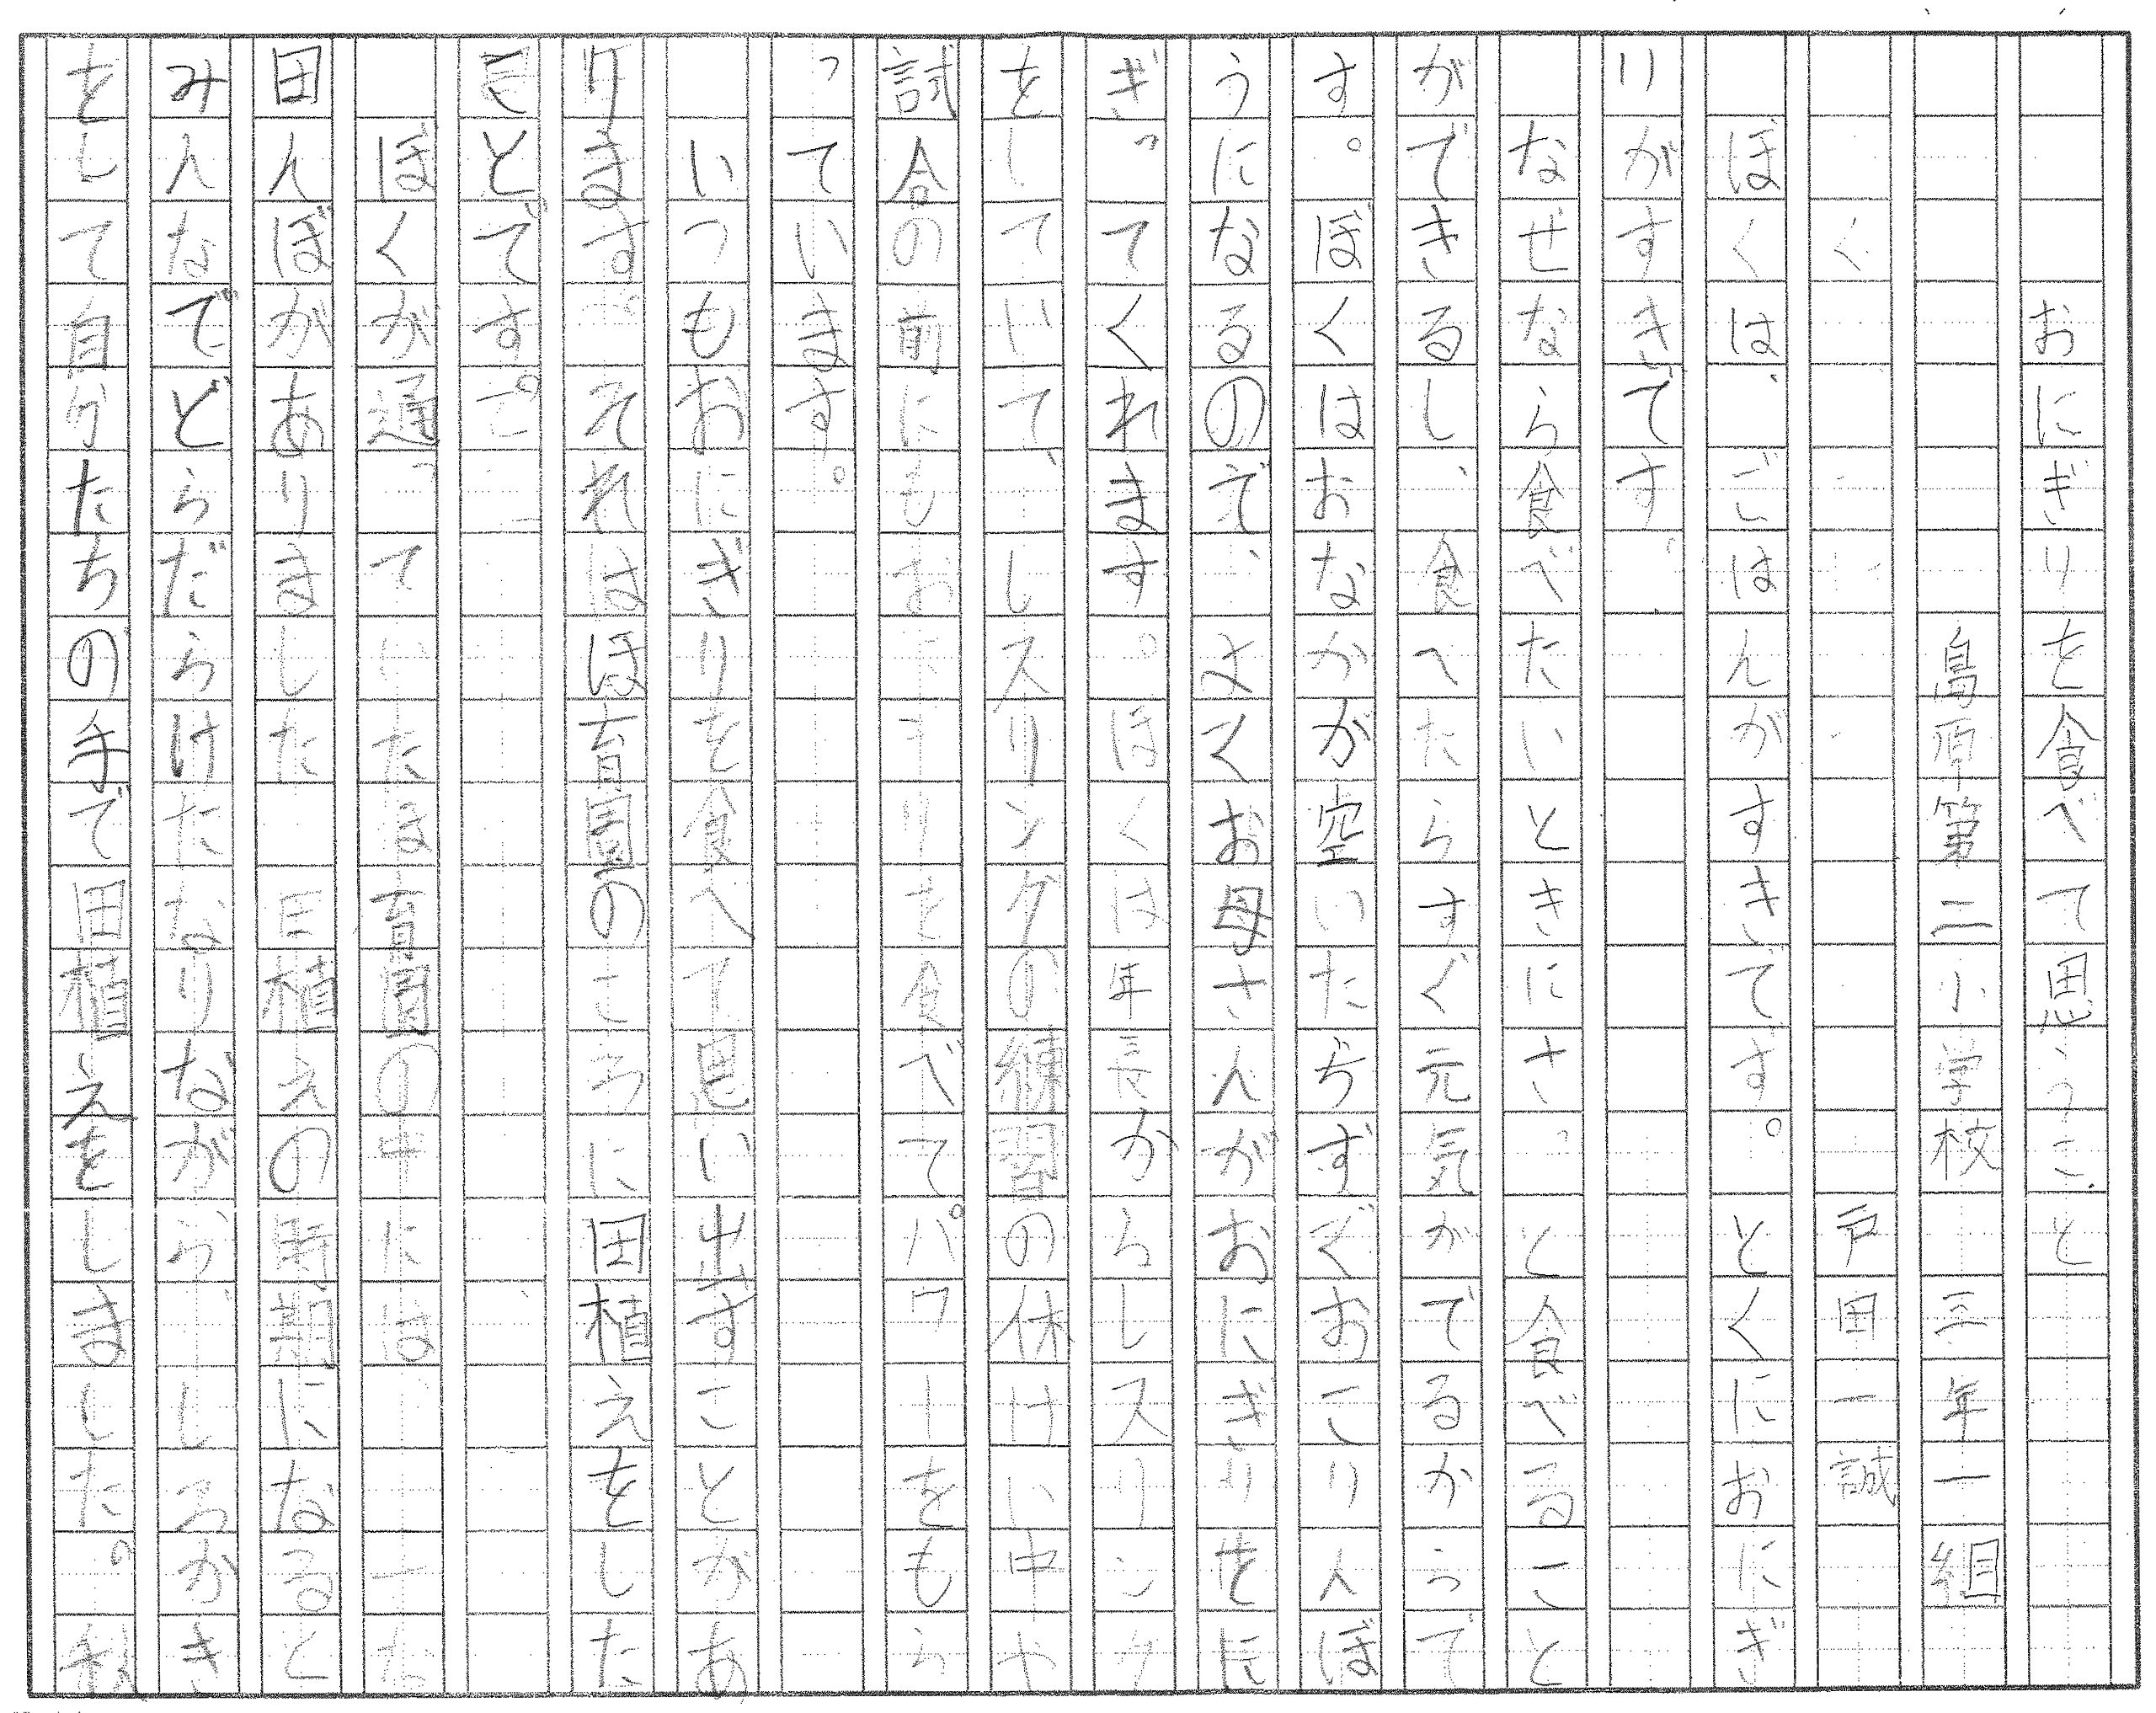 おにぎりを食べて思うこと
島原第二小学校 三年一組
戸田一誠
ぼくは、ごはんがすきです。とくにおにぎ
りがすきです。
なぜなら食べたいときにさっと食べること
ができるし、食べたらすぐ元気がでるからで
す。ぼくはおなかが空いたらちずぐおこりんぼ
うになるので、よくお母さんがおにぎりをに
ぎってくれます。ぼくは年長からしスリング
をしていて、しスリングの練習の休けい中や
試合の前にもおにぎりを食べてパワーをもら
っています。
いつもおにぎりを食べて思い出すことがあ
ります。それはほ育園のころに田植えをした
ことです。
ぼくが通っていたほ育園の中には、一た
田んぼがありました。田植えの時期になると
みんなでどらだらけたなりながら、しろかき
をして自分たちの手で田植えをしました。秋